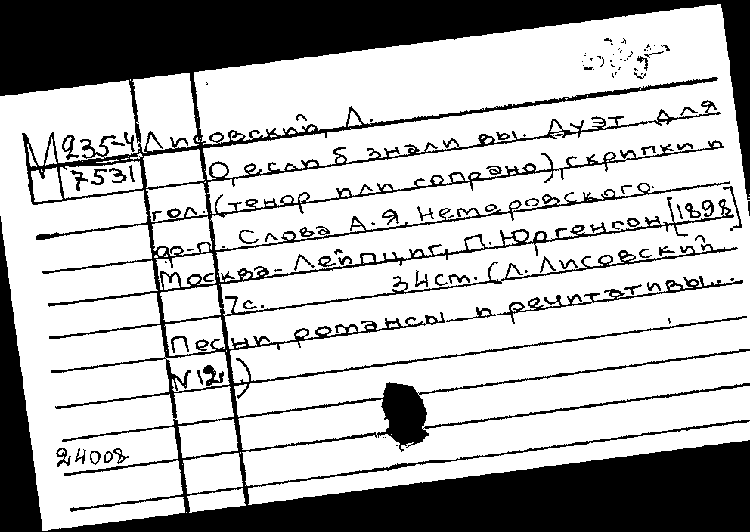 М 235-4 Лисовский, Л.
7531 О, если б знали вы. Дуэт для
гол. (тенор или сопрано), скрипки и
фо-п. Слова А. Я. Немеровского.
Москва-Лейпциг, П. Юргенсон, [1898]
7с. 34см. (Л. Лисовский
Песни, романсы и речитативы...
N 12.)
24008